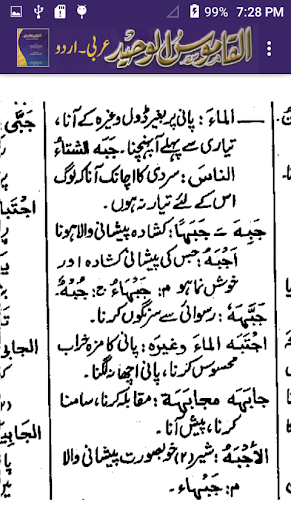 99% 7:28 PM
القاموس الوحید عربی۔اردو
الماءَ: پانی پر بغیر ڈول وغیرہ کے آنا،
تیاری سے پہلے آپہنچنا۔ جَبَه الشتاءُ
الناسَ: سردی کا اچانک آنا کہ لوگ
اس کے لئے تیار نہ ہوں۔
جَبِهَ ـَ جَبَهًا: کشادہ پیشانی والا ہونا
أجْبَهُ: جس کی پیشانی کشادہ اور
خوش نما ہو م: جَبْهَاءُ ج: جُبْهٌ۔
جَبَّهَهُ: رسوائی سے سرنگوں کرنا۔
اجْتَبَه الماءَ وغیرہ: پانی کا مزہ خراب
محسوس کرنا، پانی اچھا نہ لگنا۔
جابَهَه مجابهةً: مقابلہ کرنا، سامنا
کرنا، پیش آنا۔
الأجْبَهُ: شیر (۲) خوبصورت پیشانی والا
م: جَبْهاء۔
جَبَّى
الجابی